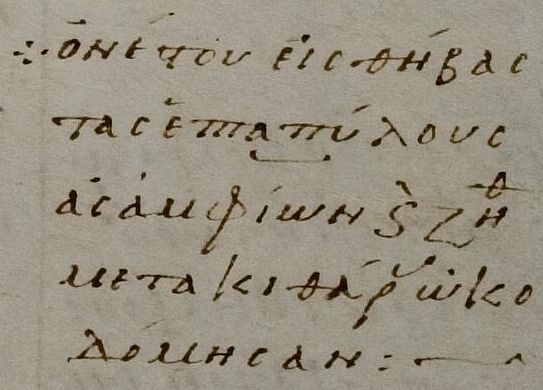 ⁘ ὁνέτου εἰς θήβας
τας ἑπταπύλους
ἁς ἀμφίων ϗ ζῆθ
μετα κιθάρ ὠκο
δόμησαν :—